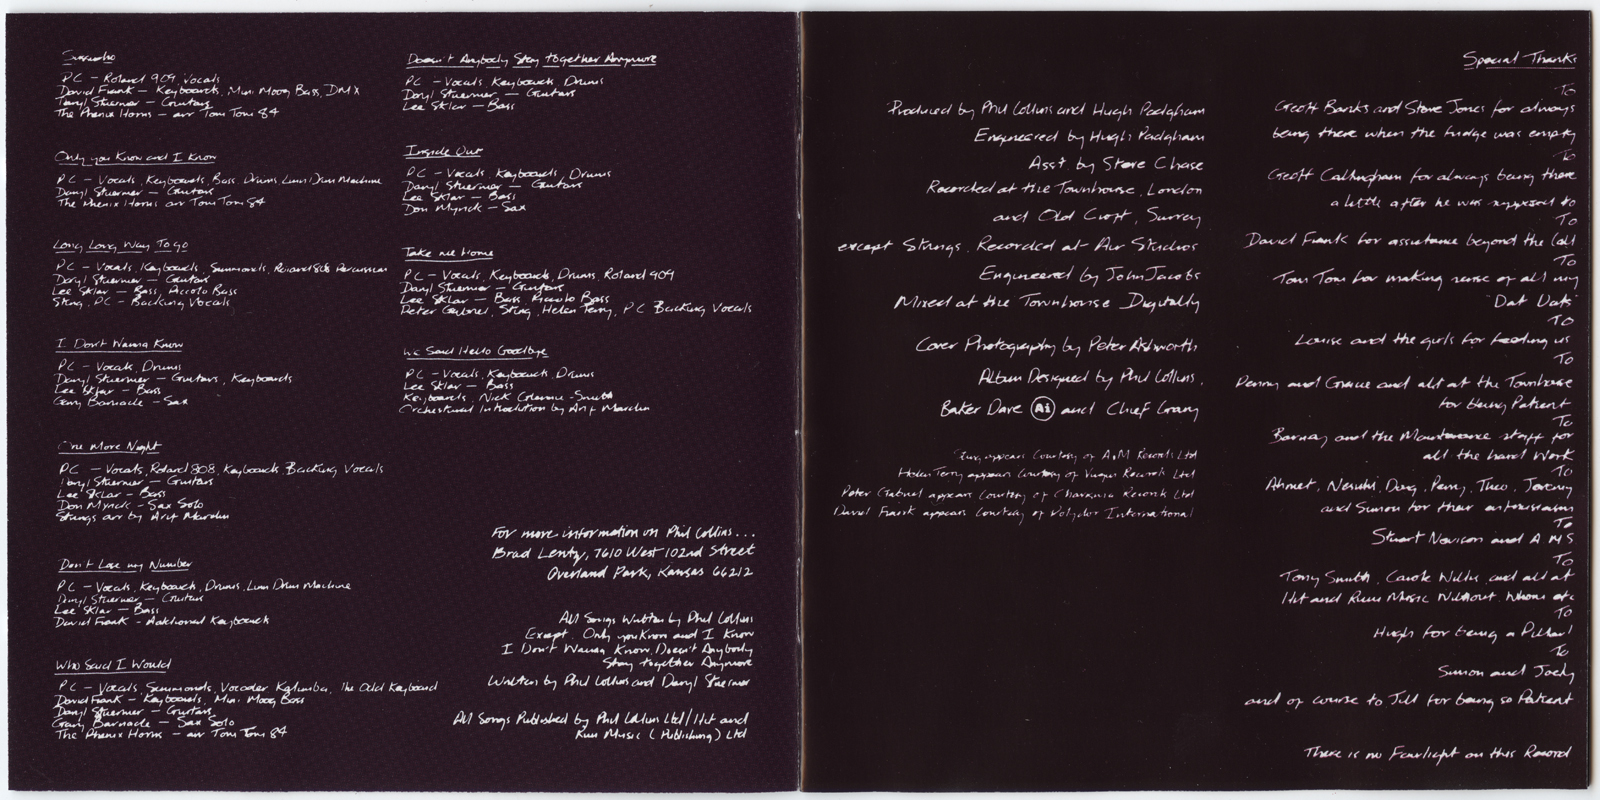 Sussudio
PC - Roland 909, Vocals
David Frank - Keyboards, Mini Moog Bass, DMX
Daryl Stuermer - Guitars
The Phenix Horns - arr Tom Tom 84
Only you Know and I Know
PC - Vocals, Keyboards, Bass, Drums, Linn Drum Machine
Daryl Stuermer - Guitars
The Phenix Horns arr Tom Tom 84
Long Long Way To go
PC - Vocals, Keyboards, Simmonds, Roland 808 Percussion
Daryl Stuermer - Guitars
Lee Sklar - Bass, Piccolo Bass
Sting, PC - Backing Vocals
I Don't Wanna Know
PC - Vocals, Drums
Daryl Stuermer - Guitars, Keyboards
Lee Sklar - Bass
Gary Barnacle - Sax
One More Night
PC - Vocals, Roland 808, Keyboards, Backing Vocals
Daryl Stuermer - Guitars
Lee Sklar - Bass
Don Myrick - Sax Solo
Strings arr by Arif Mardin
Don't Lose my Number
PC - Vocals, Keyboards, Drums, Linn Drum Machine
Daryl Stuermer - Guitars
Lee Sklar - Bass
David Frank - Additional Keyboards
Who Said I Would
PC - Vocals, Simmonds, Vocoder, Kalimba, the Odd Keyboard
David Frank - Keyboards, Mini Moog Bass
Daryl Stuermer - Guitars
Gary Barnacle - Sax Solo
The Phenix Horns - arr Tom Tom 84
Doesn't Anybody Stay together Anymore
PC - Vocals, Keyboards, Drums
Daryl Stuermer - Guitars
Lee Sklar - Bass
Inside Out
PC - Vocals, Keyboards, Drums
Daryl Stuermer - Guitars
Lee Sklar - Bass
Don Myrick - Sax
Take me Home
PC - Vocals, Keyboards, Drums, Roland 909
Daryl Stuermer - Guitars
Lee Sklar - Bass, Piccolo Bass
Peter Gabriel, Sting, Helen Terry, PC Backing Vocals
We Said Hello Goodbye
PC - Vocals, Keyboards, Drums
Lee Sklar - Bass
Keyboards, Nick Glennie-Smith
Orchestral introduction by Arif Mardin
For more information on Phil Collins...
Brad Lentz, 7610 West 102nd Street
Overland Park, Kansas 66212
All Songs Written by Phil Collins
Except, Only you Know and I Know
I Don't Wanna Know, Doesn't Anybody
Stay together Anymore
Written by Phil Collins and Daryl Stuermer
All Songs Published by Phil Collins Ltd/Hit and
Run Music (Publishing) Ltd
Produced by Phil Collins and Hugh Padgham
Engineered by Hugh Padgham
Asst. by Steve Chase
Recorded at the Townhouse, London
and Old Croft, Surrey
except Strings, Recorded at Air Studios
Engineered by John Jacobs
Mixed at the Townhouse Digitally
Cover Photography by Peter Ashworth
Album Designed by Phil Collins,
Baker Dave Ai and Chief Grany
Sting appears Courtesy of A+M Records Ltd
Helen Terry appears Courtesy of Virgin Records Ltd
Peter Gabriel appears Courtesy of Charisma Records Ltd
David Frank appears Courtesy of Polydor International
Special Thanks
To
Geoff Banks and Steve Jones for always
being there when the fudge was empty
To
Geoff Callingham for always being there
a little after he was supposed to
To
David Frank for assistance beyond the Call
To
Tom Tom for making sense of all my
'Dat Dats'
To
Louise and the girls for feeding us
To
Penny and Gracie and all at the Townhouse
for being Patient
To
Barney and the Maintenance staff for
all the hard Work
To
Ahmet, Nesuhi, Doug, Perry, Theo, Jeremy
and Simon for their enthusiasm
To
Stuart Nevison and AMS
To
Tony Smith, Carole Willis, and all at
Hit and Run Music Without Whom etc
To
Hugh for being a Pillar!
To
Simon and Joely
and of course to Jill for being so Patient
There is no Fairlight on this Record